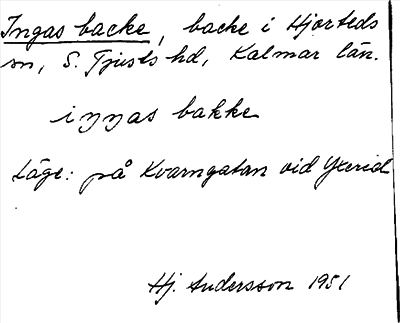 Ingas backe, backe i Hjorteds
sn, S. Tjusts hd, Kalmar län.
iŋŋas bakke
Läge: på Kvarngatan vid Yxered
Hj. Andersson 1951